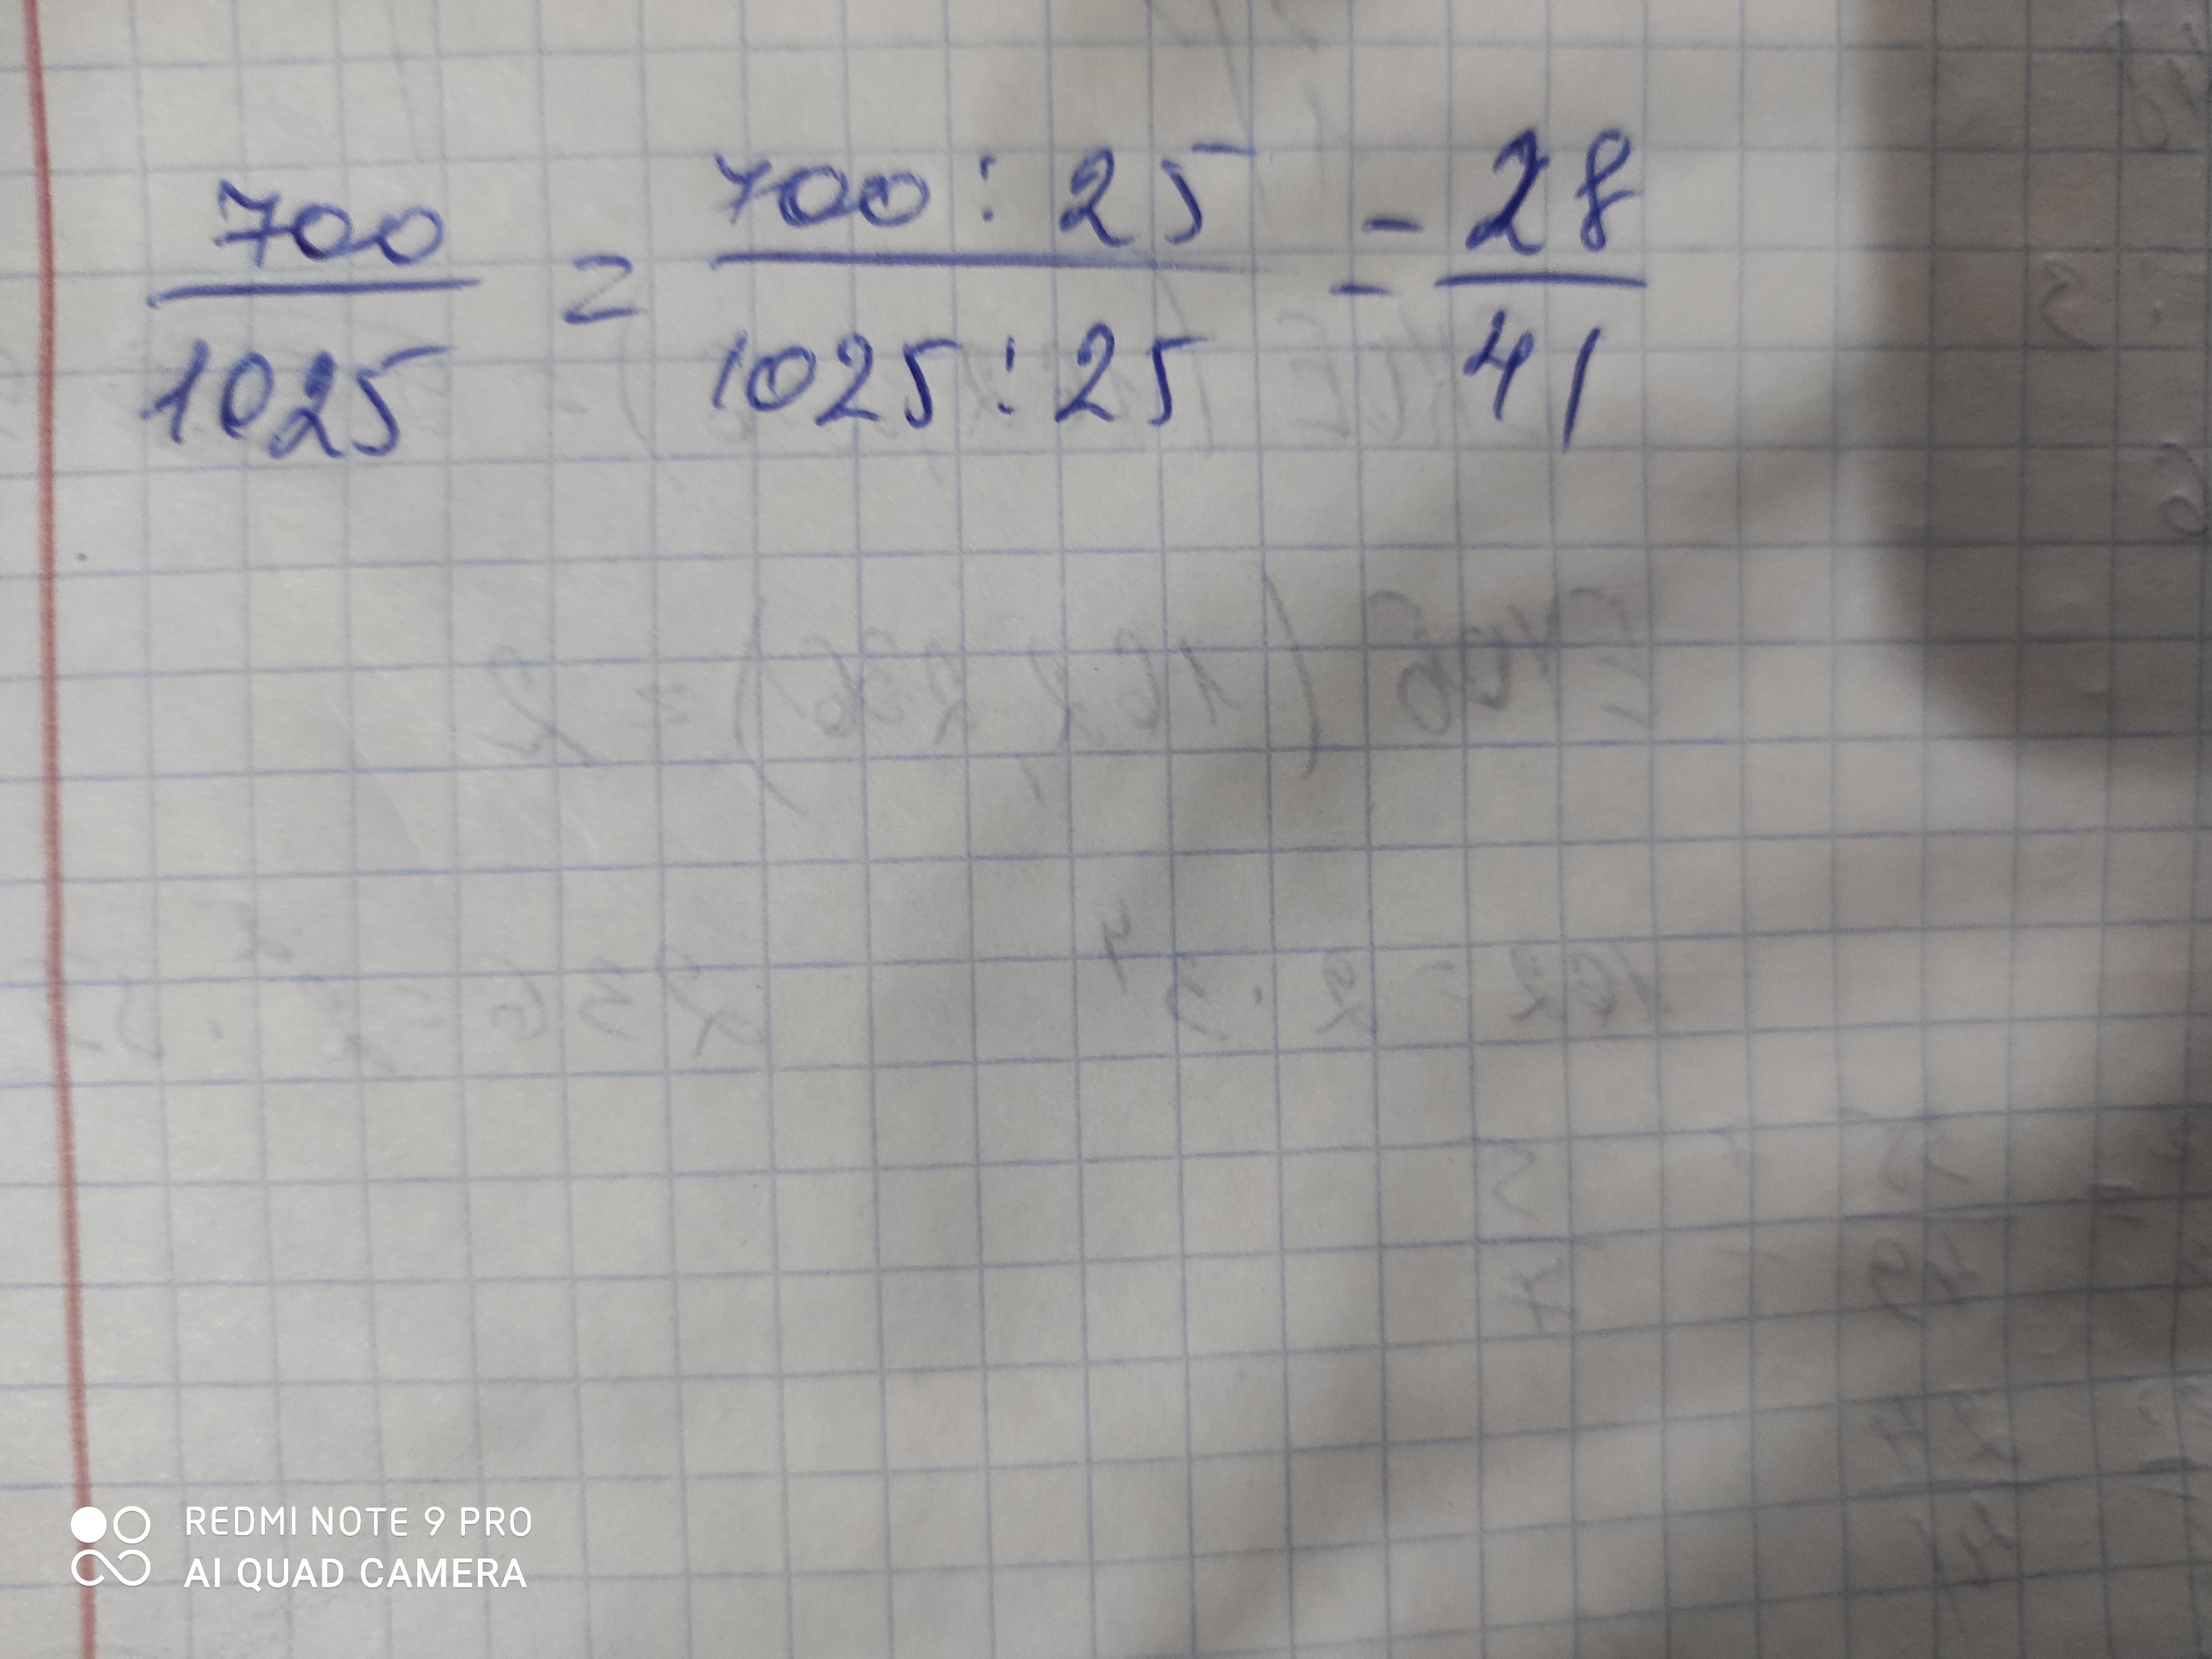 700/1025 = 700 : 25/1025 : 25 = 28/41
REDMI NOTE 9 PRO
AI QUAD CAMERA